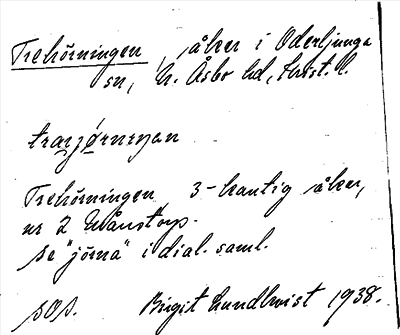 Trehörningen, åker i Oderljunga
sn, N. Åsbo hd, Krist. l.
Trehörningen, 3-kantig åker,
nr 2 Månstorp.
se "jörna" i dial. saml.
sOs. Birgit Lundkvist 1938.